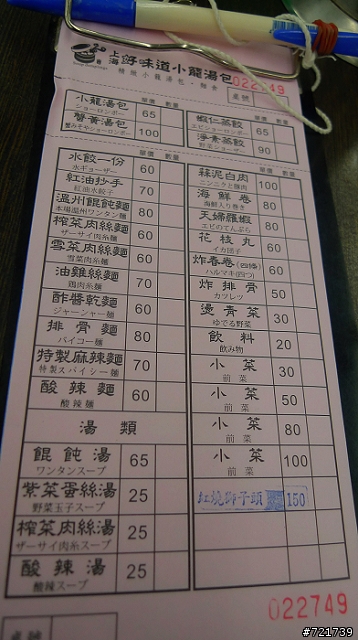 上海 好味道小龍湯包
精緻小龍湯包‧麵食
022749
桌號
單價 數量
小龍湯包 65
ショーロンポー
蟹黃湯包 100
單價 數量
蝦仁蒸餃 65
エビショーロンポー
淨素蒸餃 90
單價 數量
水餃一份 60
水ギョーザー
紅油抄手 70
紅油水餃子
溫州餛飩麵 80
本場温州ワンタン麺
榨菜肉絲麵 60
ザーサイ肉糸麺
雪菜肉絲麵 60
雪菜肉糸麺
油雞絲麵 70
鶏肉糸麺
酢醬乾麵 60
ジャージャー麺
排骨麵 80
パイコー麺
特製麻辣麵 70
特製スパイシー麺
酸辣麵 60
酸辣麺
湯類
餛飩湯 65
ワンタンスープ
紫菜蛋絲湯 25
野菜玉子スープ
榨菜肉絲湯 25
ザーサイ肉糸スープ
酸辣湯 25
酸辣スープ
單價 數量
蒜泥白肉 100
ニンニクと豚肉
海鮮卷 80
海鮮入り巻き
天婦羅蝦 80
エビのてんぷら
花枝丸 60
イカ団子
炸春卷(四條) 60
ハルマキ(四つ)
炸排骨 50
カツレツ
燙青菜 30
ゆでる野菜
飲料 20
飲み物
小菜 30
前菜
小菜 50
前菜
小菜 80
前菜
小菜 100
前菜
紅燒獅子頭 150
022749
桌號
#721739